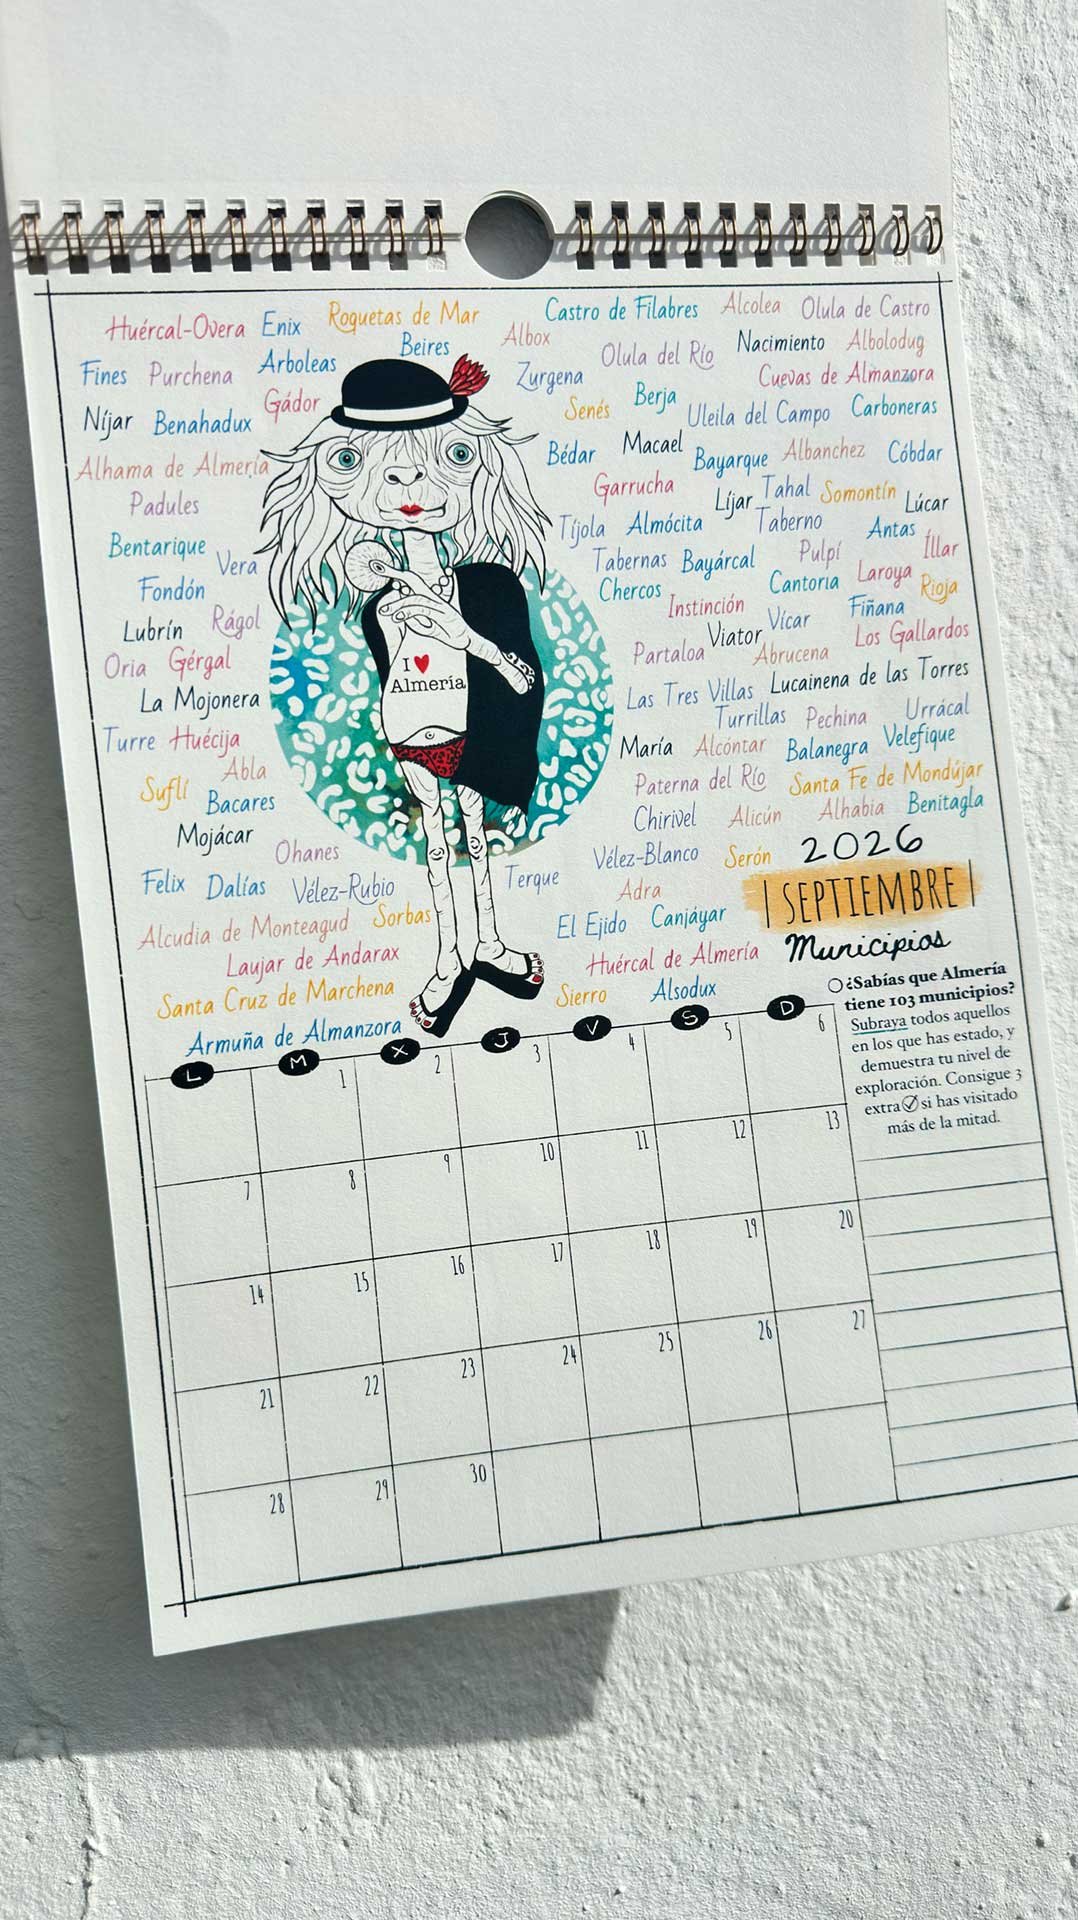 Huércal-Overa Enix Roquetas de Mar Castro de Filabres Alcolea Olula de Castro
Beires Albox Nacimiento Albolodug
Fines Purchena Arboleas Zurgena Olula del Río Cuevas de Almanzora
Níjar Benahadux Gádor Senés Berja Uleila del Campo Carboneras
Alhama de Almería Bédar Macael Bayarque Albanchez Cóbdar
Padules Garrucha Líjar Tahal Somontín Lúcar
Bentarique Vera Tíjola Almócita Taberno Antas Íllar
Fondón Tabernas Bayárcal Pulpí Laroya
Chercos Cantoria Rioja
Lubrín Rágol Instinción Vícar Fiñana
Oria Gérgal Partaloa Viator Abrucena Los Gallardos
I ♥
Almería
La Mojonera Las Tres Villas Lucainena de las Torres
Turre Huécija Turrillas Pechina Urrácal
Abla María Alcóntar Balanegra Velefique
Suflí Bacares Paterna del Río Santa Fe de Mondújar
Mojácar Chirivel Alicún Alhabia Benitagla
Ohanes Vélez-Blanco Serón
Felix Dalías Vélez-Rubio Terque Adra
Alcudia de Monteagud Sorbas El Ejido Canjáyar
Laujar de Andarax Huércal de Almería
Santa Cruz de Marchena Sierro Alsodux
Armuña de Almanzora
2026
| SEPTIEMBRE |
Municipios
¿Sabías que Almería
tiene 103 municipios?
Subraya todos aquellos
en los que has estado, y
demuestra tu nivel de
exploración. Consigue 3
extra si has visitado
más de la mitad.
L M X J V S D
1 2 3 4 5 6
7 8 9 10 11 12 13
14 15 16 17 18 19 20
21 22 23 24 25 26 27
28 29 30